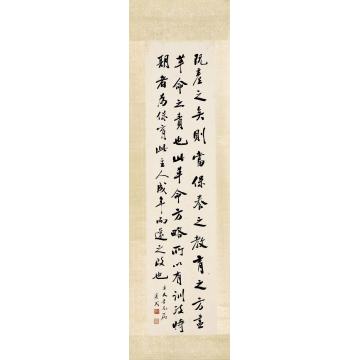 既產之矣則當保養之教育之方盡
革命之責也此革命方略所以有訓政時
期者為保育此主人成年而還之政也